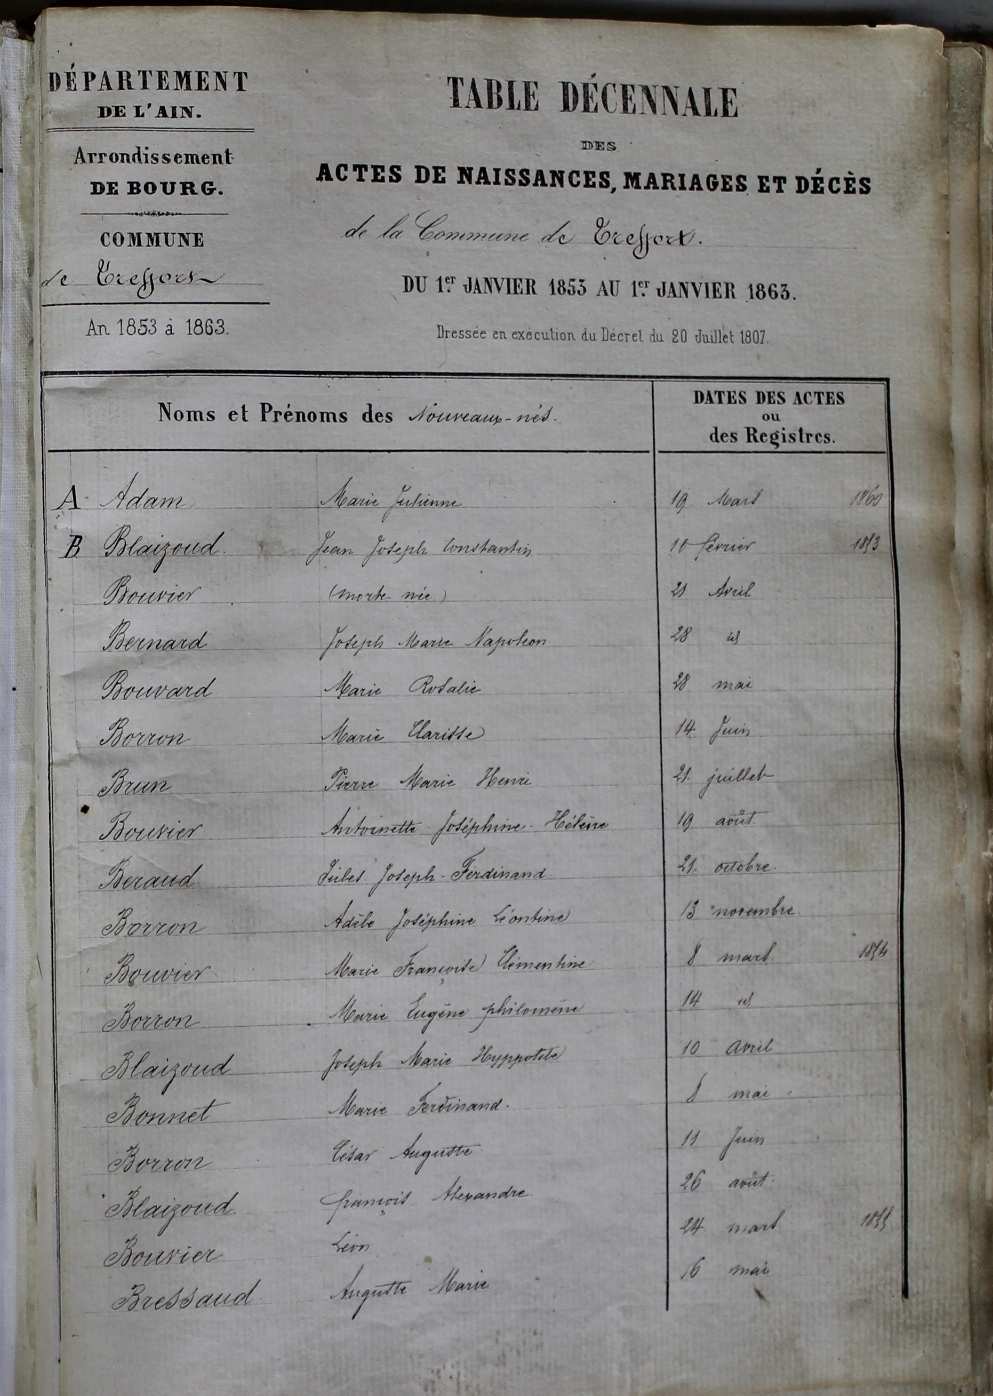 DÉPARTEMENT
DE L'AIN.
Arrondissement
DE BOURG.
COMMUNE
de Treffort
An 1853 à 1863.
TABLE DÉCENNALE
DES
ACTES DE NAISSANCES, MARIAGES ET DÉCÈS
de la Commune de Treffort.
DU 1er JANVIER 1853 AU 1er JANVIER 1863.
Dressée en exécution du Décret du 20 Juillet 1807.
Noms et Prénoms des Nouveaux-nés. DATES DES ACTES
ou
des Registres.
A Adam Marie Julienne 19 Mars 1860
B Blaizoud Jean Joseph Constantin 10 février 1853
Bouvier (morte née) 21 Avril
Bernard Joseph Marie Napoléon 28 id
Bouvard Marie Rosalie 28 mai
Borron Marie Clarisse 14 Juin
Brun Pierre Marie Henri 21 juillet
Bouvier Antoinette Joséphine Hélène 19 août
Beraud Joseph Ferdinand 21 octobre
Borron Adèle Joséphine Léontine 13 novembre
Bouvier Marie Françoise Clémentine 8 mars 1854
Borron Marie Eugène philomène 14 id
Blaizoud Joseph Marie Hyppolite 10 avril
Bonnet Marie Ferdinand. 8 mai
Borron César Auguste 11 Juin
Blaizoud françois Alexandre 26 août
Bouvier Léon 24 mars 1855
Bressaud Auguste Marie 16 mai